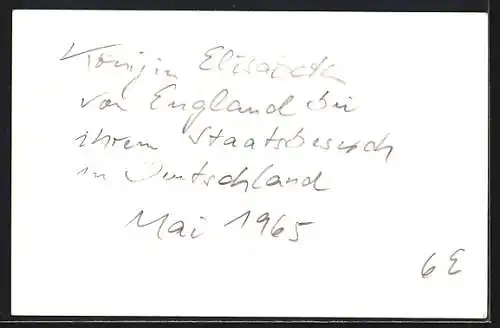 Königin Elisabeth
von England bei
ihrem Staatsbesuch
in Deutschland
Mai 1965
6 E